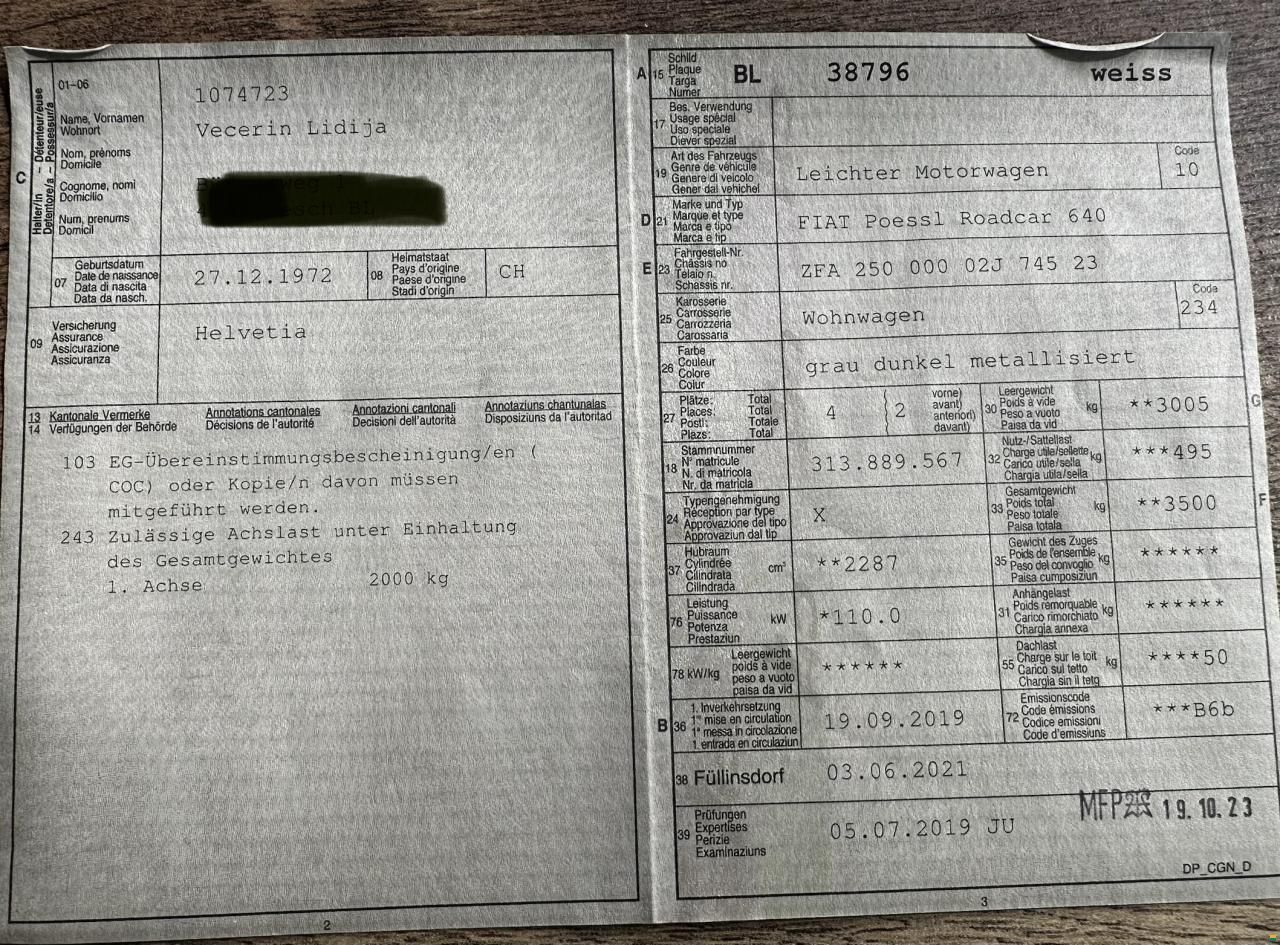 C
Halter/in – Détenteur/euse
Detentore/a – Possessur/a
01–06
1074723
Name, Vornamen
Wohnort
Vecerin Lidija
Nom, prénoms
Domicile
Cognome, nomi
Domicilio
Num, prenums
Domicil
BL
07
Geburtsdatum
Date de naissance
Data di nascita
Data da nasch.
27.12.1972
08
Heimatstaat
Pays d'origine
Paese d'origine
Stadi d'origin
CH
09
Versicherung
Assurance
Assicurazione
Assicuranza
Helvetia
13 Kantonale Vermerke Annotations cantonales Annotazioni cantonali Annotaziuns chantunalas
14 Verfügungen der Behörde Décisions de l'autorité Decisioni dell'autorità Disposiziuns da l'autoritad
103 EG-Übereinstimmungsbescheinigung/en (
COC) oder Kopie/n davon müssen
mitgeführt werden.
243 Zulässige Achslast unter Einhaltung
des Gesamtgewichtes
1. Achse 2000 kg
2
A 15
Schild
Plaque
Targa
Numer
BL 38796 weiss
17
Bes. Verwendung
Usage spécial
Uso speciale
Diever spezial
19
Art des Fahrzeugs
Genre de véhicule
Genere di veicolo
Gener dal vehichel
Leichter Motorwagen
Code
10
D 21
Marke und Typ
Marque et type
Marca e tipo
Marca e tip
FIAT Poessl Roadcar 640
E 23
Fahrgestell-Nr.
Châssis no
Telaio n.
Schassis nr.
ZFA 250 000 02J 745 23
25
Karosserie
Carrosserie
Carrozzeria
Carossaria
Wohnwagen
Code
234
26
Farbe
Couleur
Colore
Colur
grau dunkel metallisiert
27
Plätze: Total
Places: Total
Posti: Totale
Plazs: Total
4
2
vorne)
avant)
anteriori)
davant)
30
Leergewicht
Poids à vide
Peso a vuoto
Paisa da vid
kg
**3005
G
18
Stammnummer
N° matricule
N. di matricola
Nr. da matricla
313.889.567
32
Nutz-/Sattellast
Charge utile/sellette
Carico utile/sella
Chargia utila/sella
kg
***495
24
Typengenehmigung
Réception par type
Approvazione del tipo
Approvaziun dal tip
X
33
Gesamtgewicht
Poids total
Peso totale
Paisa totala
kg
**3500
F
37
Hubraum
Cylindrée
Cilindrata
Cilindrada
cm³
**2287
35
Gewicht des Zuges
Poids de l'ensemble
Peso del convoglio
Paisa cumposiziun
kg
******
76
Leistung
Puissance
Potenza
Prestaziun
kW
*110.0
31
Anhängelast
Poids remorquable
Carico rimorchiato
Chargia annexa
kg
******
78 kW/kg
Leergewicht
poids à vide
peso a vuoto
paisa da vid
******
55
Dachlast
Charge sur le toit
Carico sul tetto
Chargia sin il tetg
kg
****50
B 36
1. Inverkehrsetzung
1re mise en circulation
1a messa in circolazione
1. entrada en circulaziun
19.09.2019
72
Emissionscode
Code émissions
Codice emissioni
Code d'emissiuns
***B6b
38 Füllinsdorf 03.06.2021
39
Prüfungen
Expertises
Perizie
Examinaziuns
05.07.2019 JU
MFP 19.10.23
DP_CGN_D
3